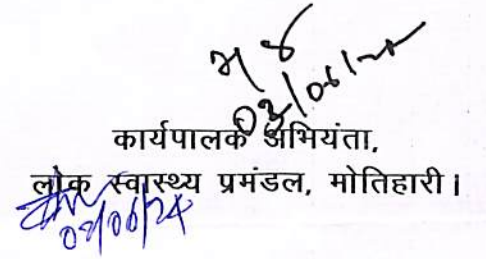 03/06/24
कार्यपालक अभियंता,
लोक स्वास्थ्य प्रमंडल, मोतिहारी।
03/06/24